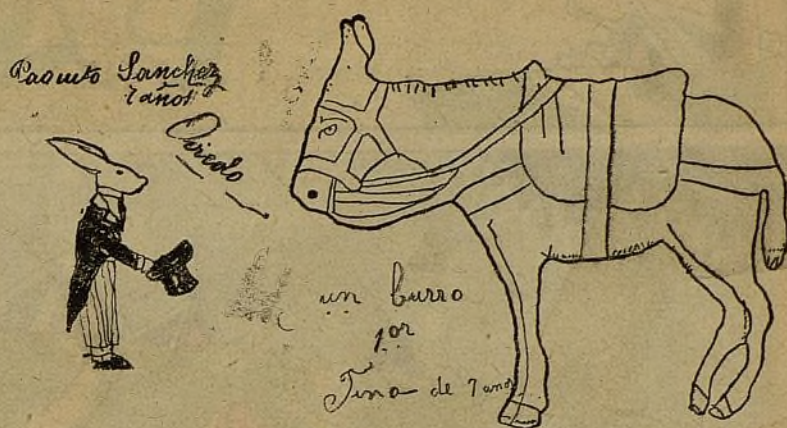 Paquito Sanchez
7 años
Oviedo
un burro
por
Tina de 7 años